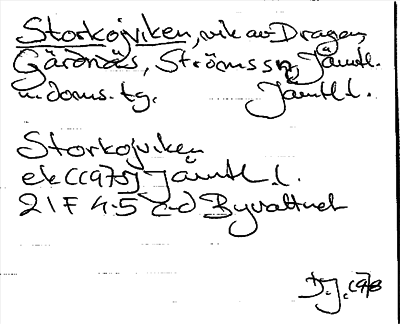 Storkojviken, vik av Dragan,
Gärdnäs, Ströms sn, Jämtl.
n. doms. tg. Jämtl. l.
Storkojviken
ek (1975) Jämtl. l.
21F 4-5 c-d Byvattnet
D.J. 1978